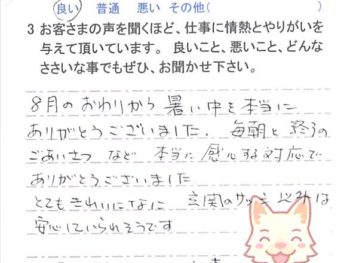 良い 普通 悪い その他(        )
3 お客さまの声を聞くほど、仕事に情熱とやりがいを
与えて頂いています。 良いこと、悪いこと、どんな
ささいな事でもぜひ、お聞かせ下さい。
8月のおわりから 暑い中を本当に
ありがとうございました。毎朝と終りの
ごあいさつ など 本当に 感心する対応で
ありがとうございました
とてもきれいになに 玄関のサッシ以外は
安心していられそうです